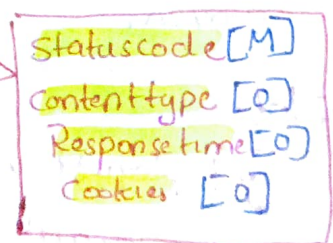 Statuscode [M]
Contenttype [O]
Responsetime [O]
Cookies [O]